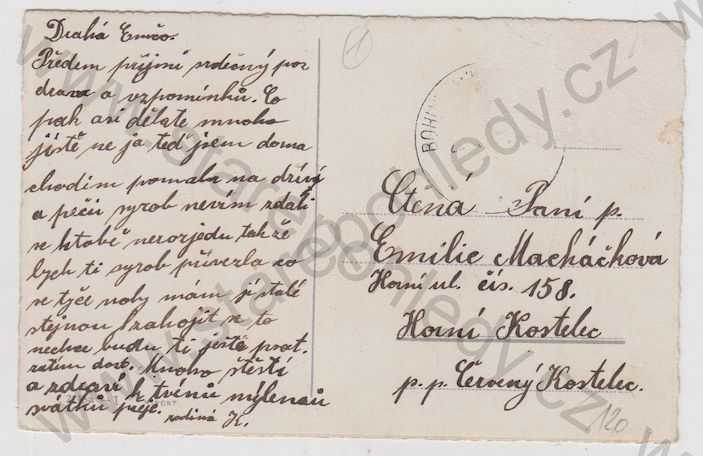 Drahá Emčo.
Předem přijmi srdečný poz
drav a vzpomínků. Co
pak asi děláte mnoho
jistě ne ja teď jsem doma
chodím pomalu na dříví
a peču syrob nevím zdali
se k tobě nerozjedu tak že
bych ti syrob přivezla co
se týče nohy mám ji stálé
stejnou zahojit se to
nechce budu ti ještě psat.
zatím dost. Mnoho štěstí
a zdraví k tvému
svátků přeje.
rodina K.
1
BOHU
Ctěná Paní p.
Emilie Macháčková
Horní ul. čís. 158.
Horní Kostelec
p.p. Červený Kostelec.
120
www.starepohledy.cz
www.starepohledy.cz